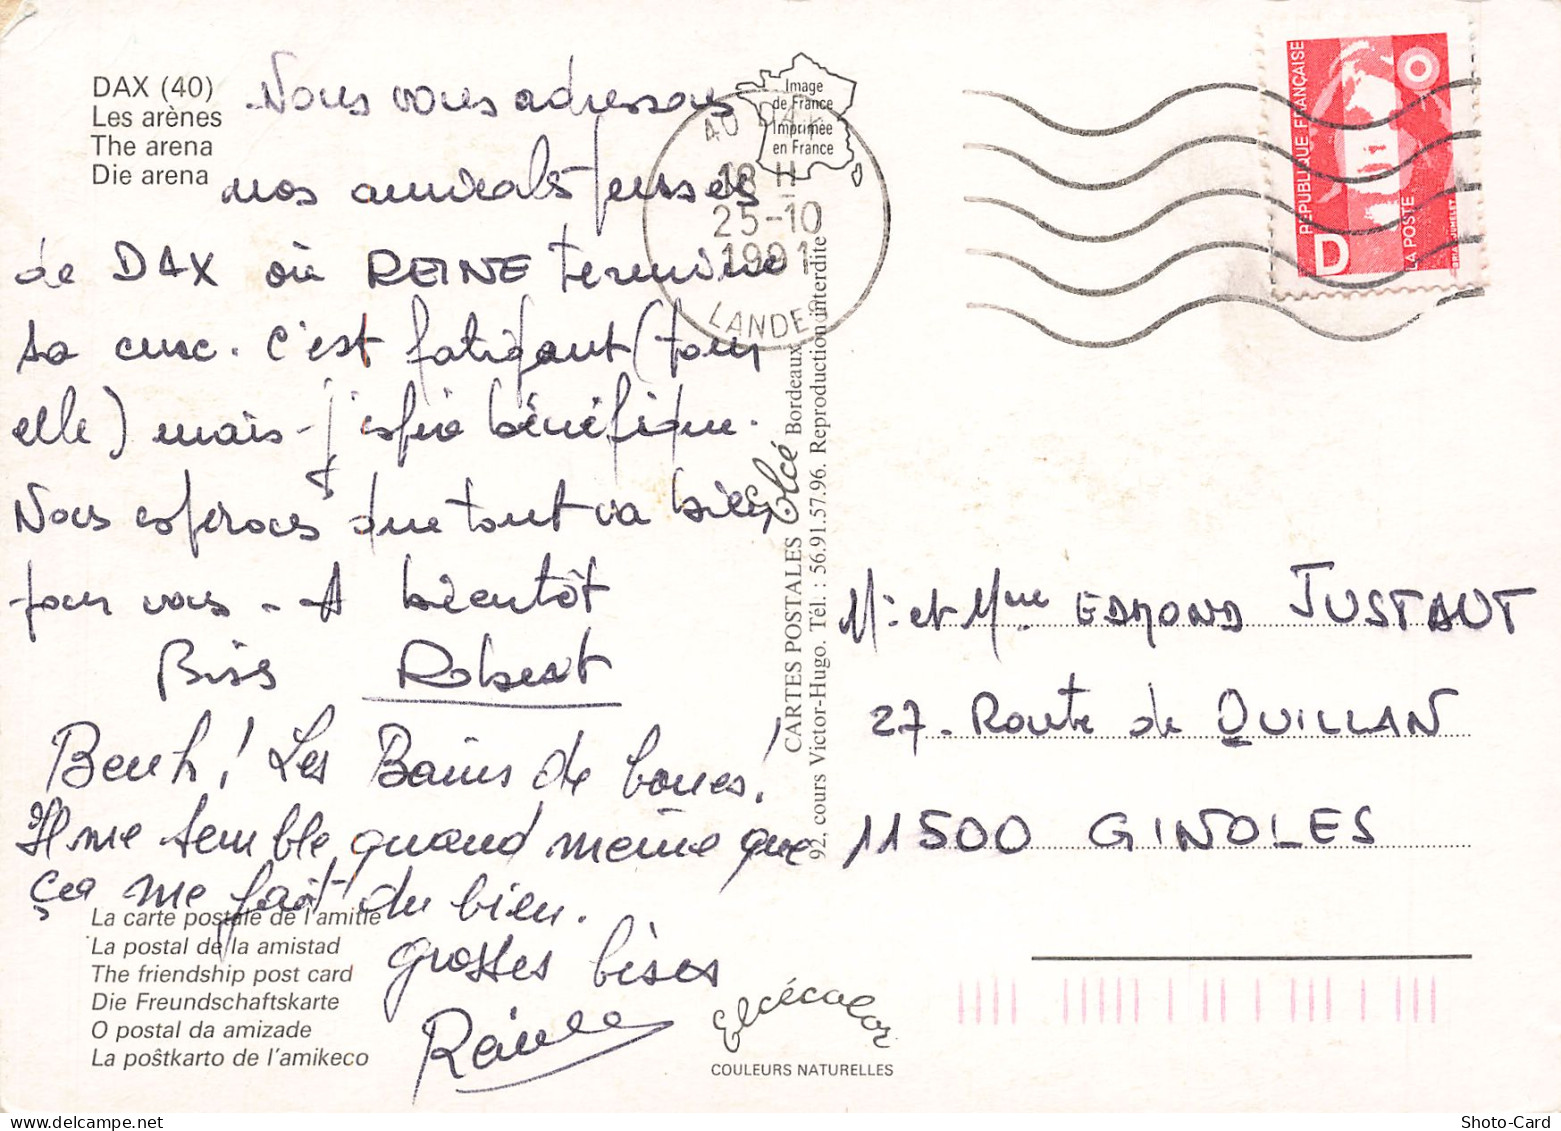 DAX (40)
Les arènes
The arena
Die arena
Nous vous adressons
nos amicales pensées
de DAX où REINE termine
sa cure. C'est fatigant (pour
elle) mais j'espère bénéfique.
Nous espérons que tout va bien
pour vous - A bientôt
Biss Robert
Beuh! Les Bains de boues!
Il me semble quand même que
ça me fait du bien.
grosses bises
Reine
La carte postale de l'amitié
La postal de la amistad
The friendship post card
Die Freundschaftskarte
O postal da amizade
La poŝtkarto de l'amikeco
Image
de France
Imprimée
en France
40 DAX
18 H
25-10
1991
LANDES
CARTES POSTALES Elcé Bordeaux
92, cours Victor-Hugo. Tél. : 56.91.57.96. Reproduction interdite
Elcécolor
COULEURS NATURELLES
RÉPUBLIQUE FRANÇAISE
D
LA POSTE
O
JUMELET
Mr et Mme EDMOND JUSTAUT
27 - Route de QUILLAN
11500 GINOLES
Shoto-Card